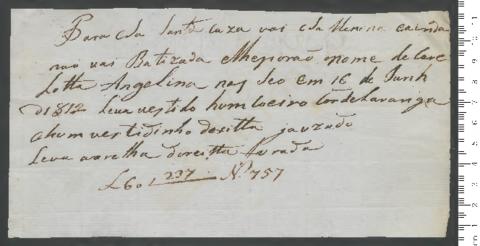 Para esta Santa caza vai esta Menina e ainda
não vai Batizada e lhe porão o nome de Car
lotta Angelina nasseo em 16 de Junh
d 1812 Leva vestido hum coeiro cor de laranja
e hum vestidinho de xitta já uzado
Leva a orelha direitta furada
L 60 237 Nº 757